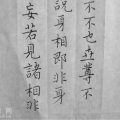 不不也世尊不
說身相即非身
妄若見諸相非